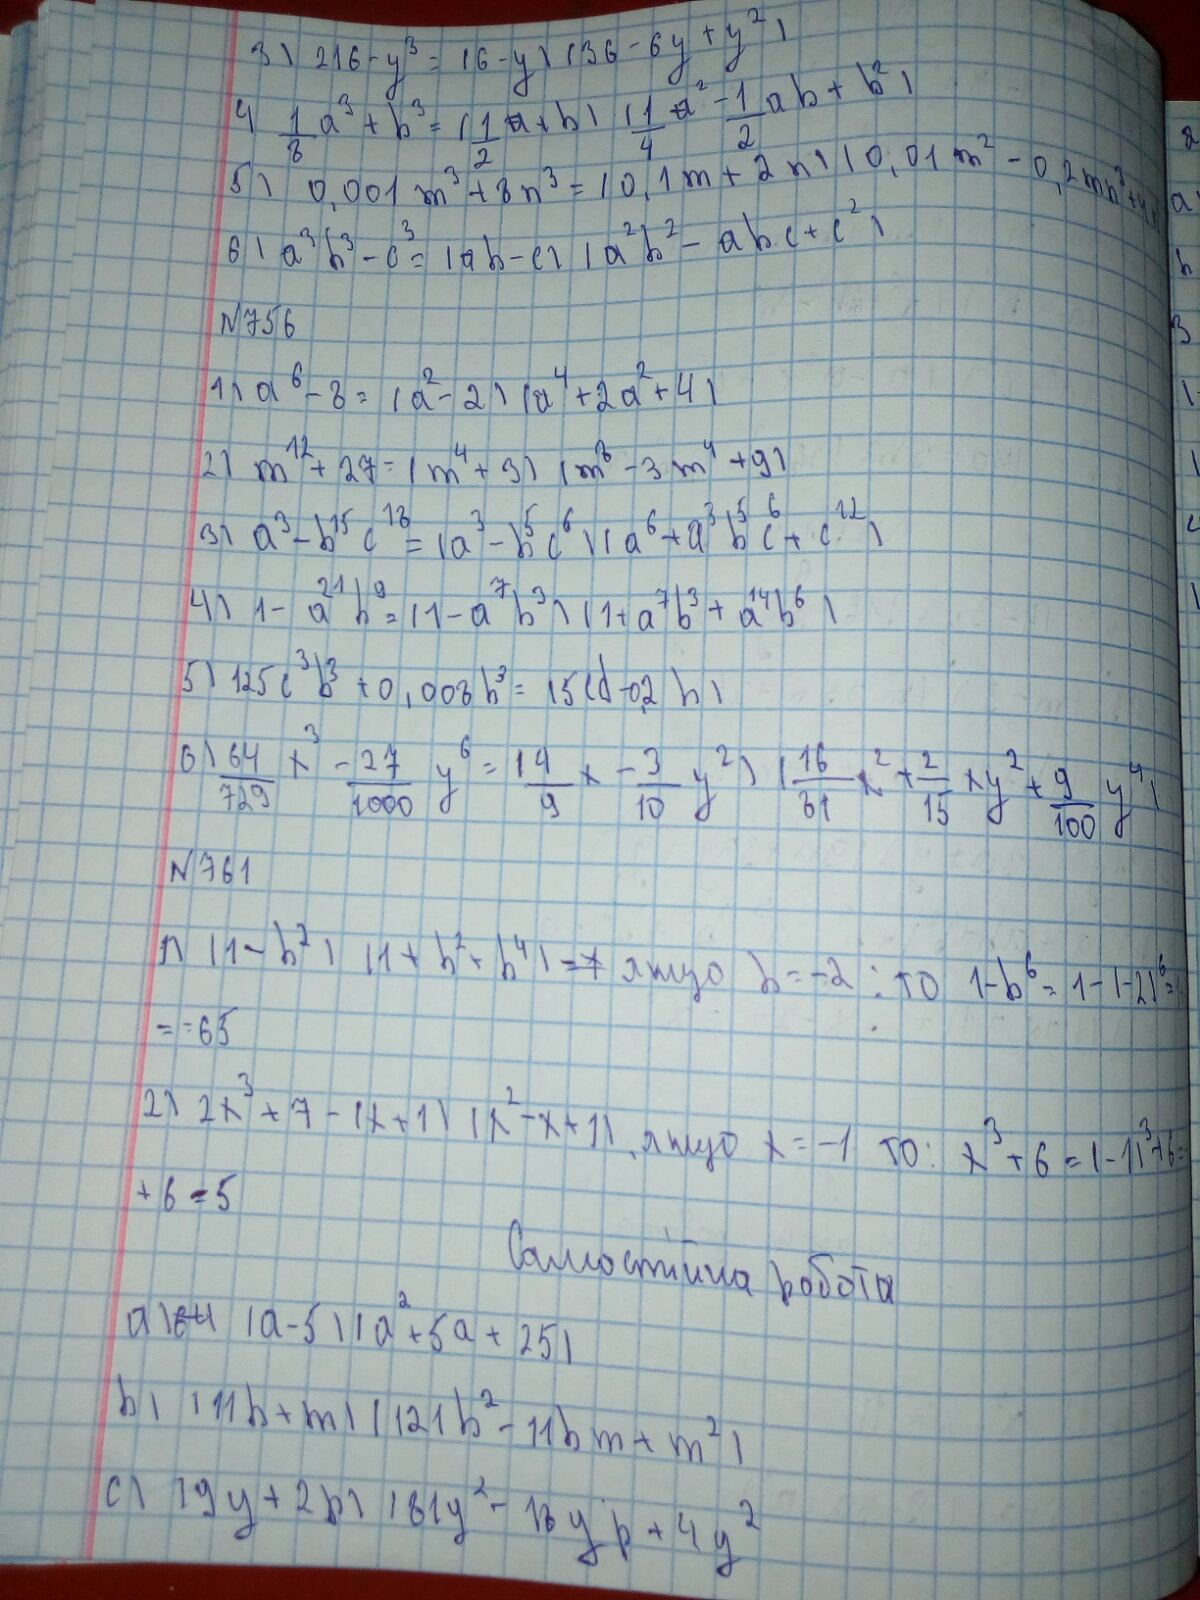 3) 216-y³=(6-y)(36-6y+y²)
4) 1/8 a³+b³=(1/2 a+b)(1/4 a²-1/2 ab+b²)
5) 0,001m³+8n³=(0,1m+2n)(0,01m²-0,2mn³+4
6) a³b³-c³=(ab-c)(a²b²-abc+c²)
№756
1) a⁶-8=(a²-2)(a⁴+2a²+4)
2) m¹²+27=(m⁴+3)(m⁸-3m⁴+9)
3) a³-b¹⁵c¹⁸=(a³-b⁵c⁶)(a⁶+a³b⁵c⁶+c¹²)
4) 1-a²¹b⁹=(1-a⁷b³)(1+a⁷b³+a¹⁴b⁶)
5) 125c³b³+0,008b³=(5cd-0,2b)
6) 64/729 x³-27/1000 y⁶=(4/9 x-3/10 y²)(16/81 x²+2/15 xy²+9/100 y⁴)
№761
1) (1-b²)(1+b²+b⁴)=7 якщо b=-2: то 1-b⁶=1-(-2)⁶=
=-65
2) 2x³+7-(x+1)(x²-x+1), якщо x=-1 то: x³+6=(-1)³+6=
+6=5
Самостійна робота
a) (a-5)(a²+5a+25)
b) (11b+m)(121b²-11bm+m²)
c) (9y+2p)(81y²-18yp+4y²